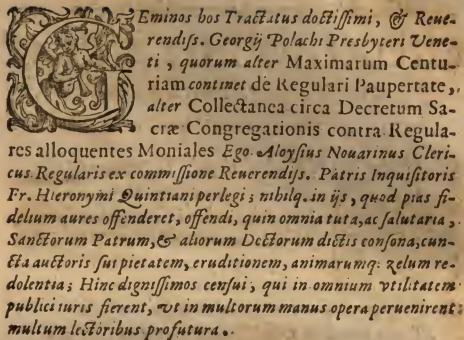 GEminos hos Tractatus doctissimi, & Reue-
rendiss. Georgij Polachi Presbyteri Vene-
ti, quorum alter Maximarum Centu-
riam continet de Regulari Paupertate,
alter Collectanea circa Decretum Sa-
cræ Congregationis contra Regula-
res alloquentes Moniales Ego Aloysius Nouarinus Cleri-
cus Regularis ex commissione Reuerendiss. Patris Inquisitoris
Fr. Hieronymi Quintiani perlegi; nihilq. in ijs, quod pias fi-
delium aures offenderet, offendi, quin omnia tuta, ac salutaria,
Sanctorum Patrum, & aliorum Doctorum dictis consona, cun-
cta auctoris sui pietatem, eruditionem, animarumq; zelum re-
dolentia; Hinc dignissimos censui, qui in omnium vtilitatem
publici iuris fierent, vt in multorum manus opera peruenirent
multum lectoribus profutura.